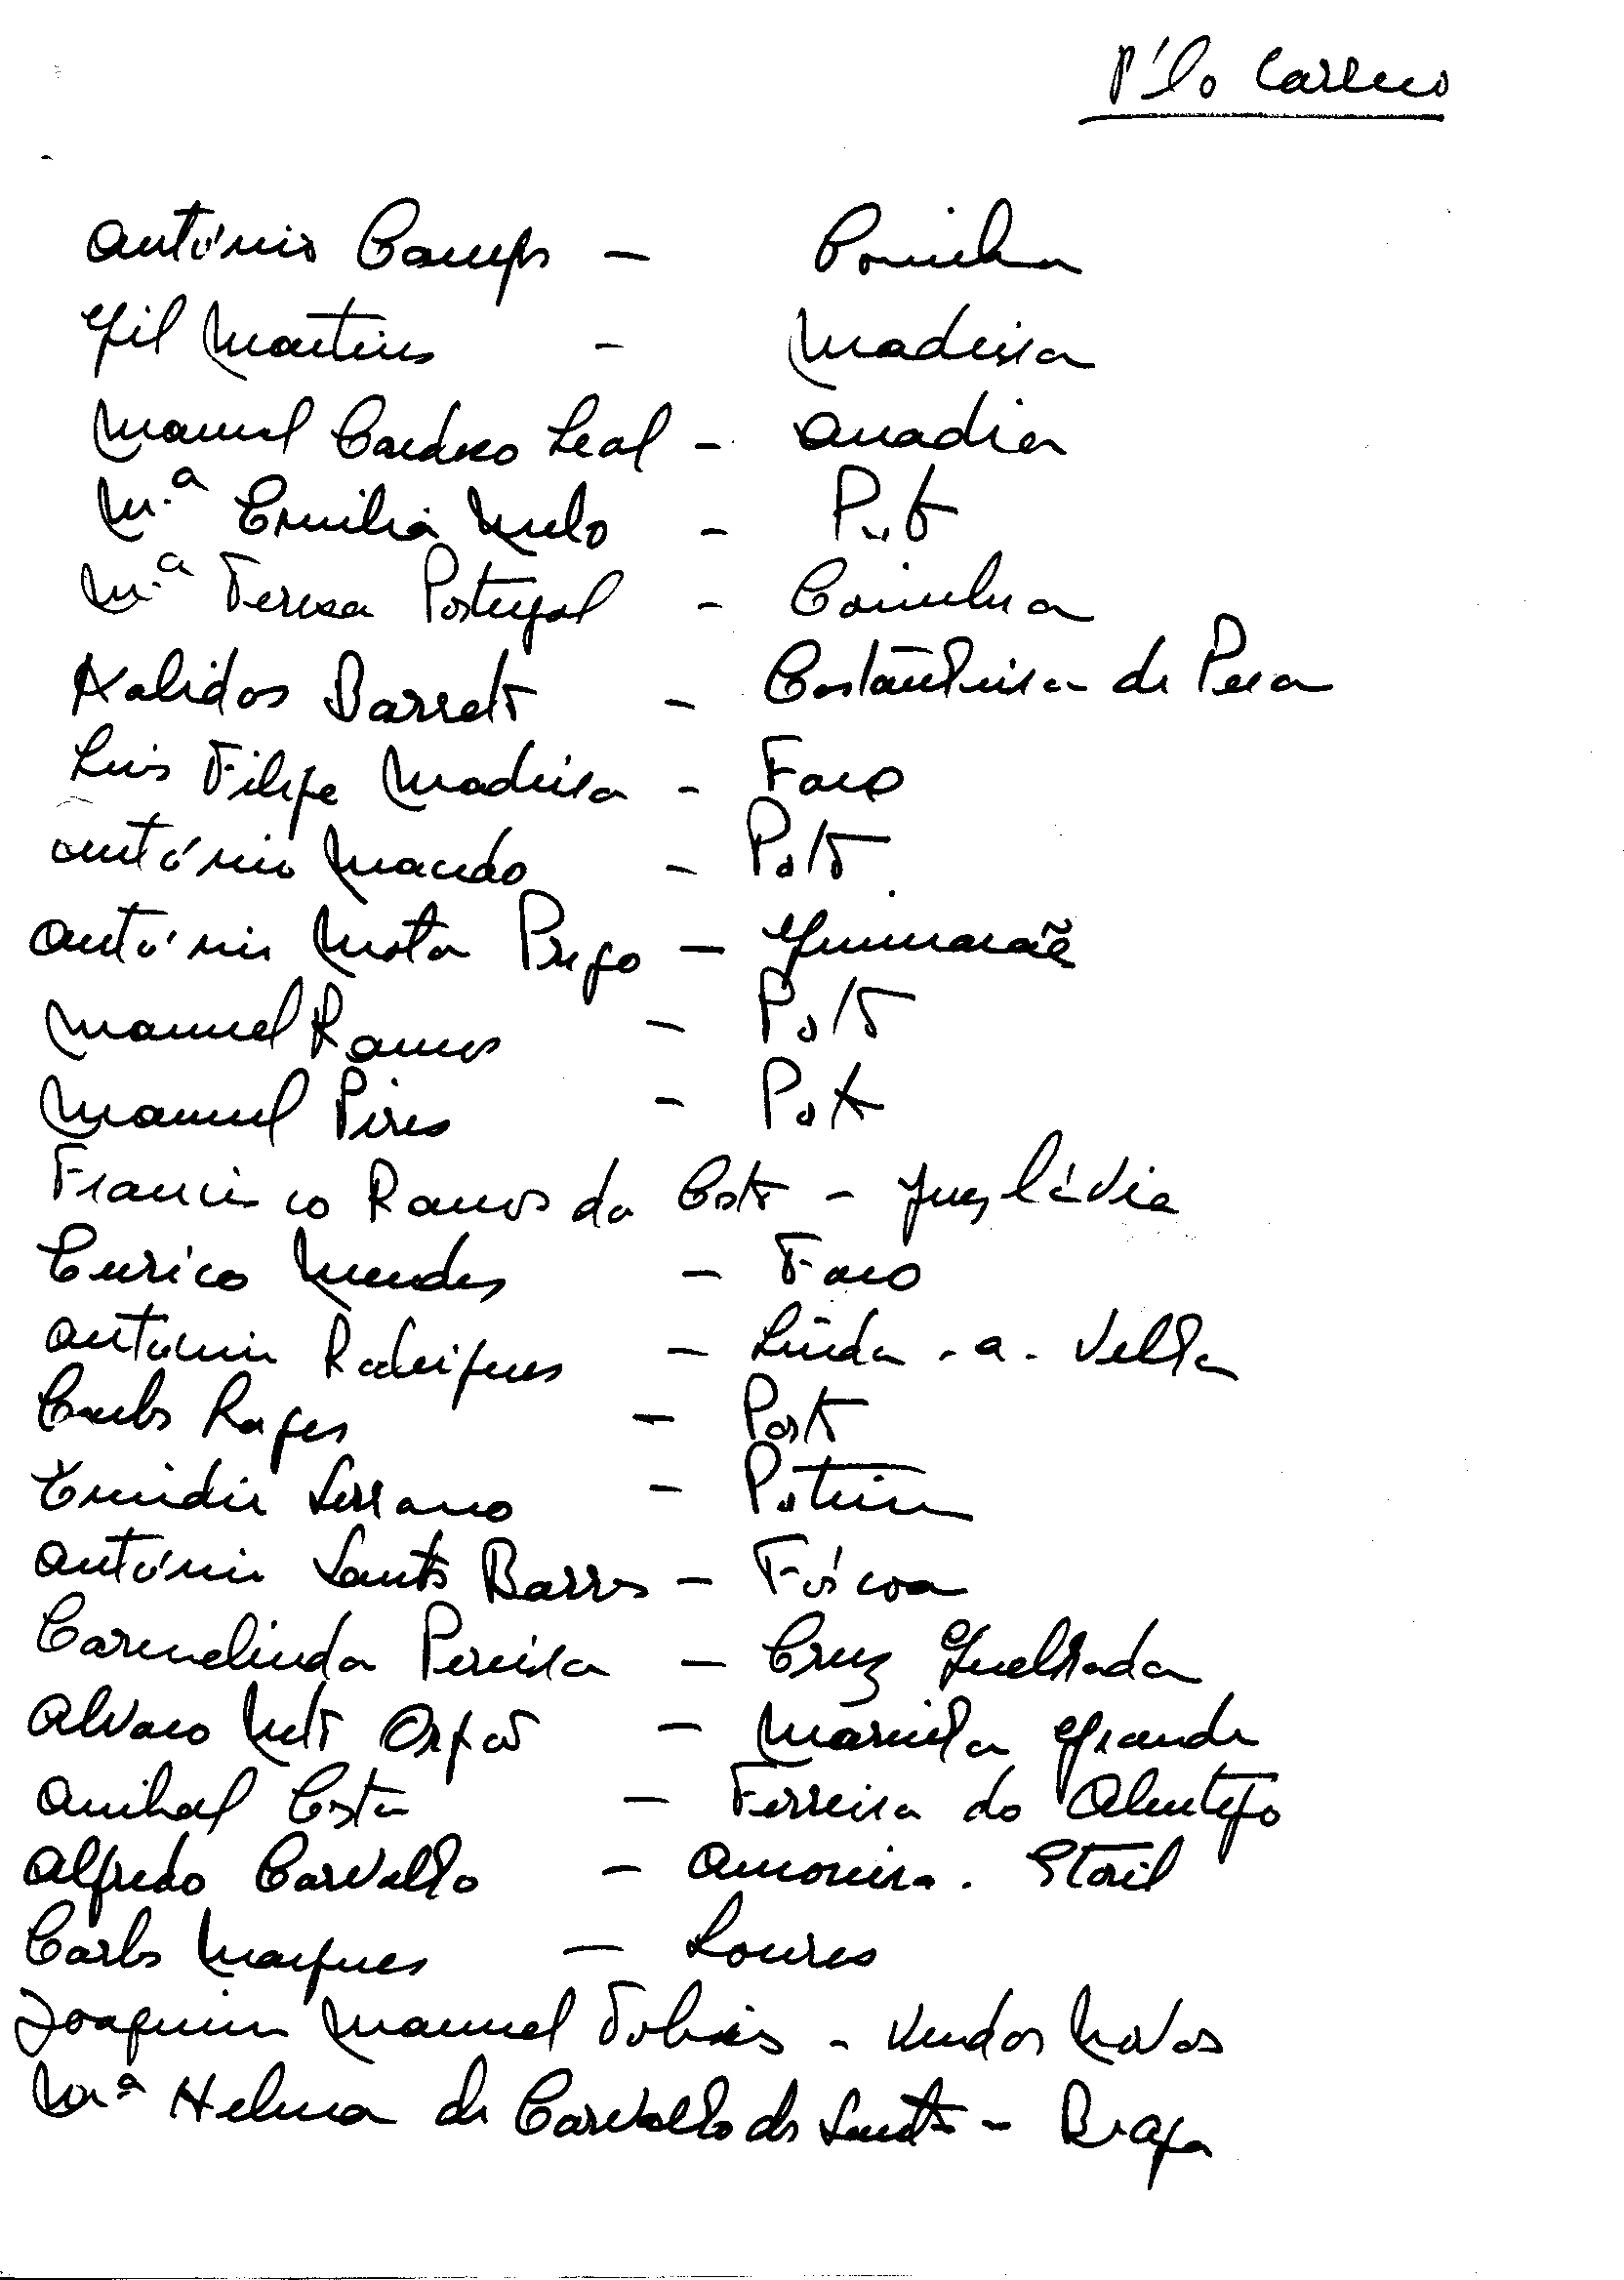 P'lo Carreio
António Campos - Coimbra
Gil Martins - Madeira
Manuel Cardoso Leal - Anadia
M.ª Emilia Melo - Porto
M.ª Teresa Portugal - Coimbra
Kalidas Barreto - Castanheira de Pera
Luis Filipe Madeira - Faro
António Macedo - Porto
António Mota Prego - Guimarães
Manuel Ramos - Porto
Manuel Pires - Porto
Francisco Ramos da Costa - Jugoslávia
Eurico Mendes - Faro
António Rodrigues - Linda-a-Velha
Carlos Lages - Porto
Emidio Serrano - Portimão
António Santos Barros - Fóscoa
Carmelinda Pereira - Cruz Quebrada
Alvaro Neto Orfão - Marinha Grande
Anibal Costa - Ferreira do Alentejo
Alfredo Carvalho - Amoreira. Estoril
Carlos Marques - Loures
Joaquim Manuel Tobias - Vendas Novas
M.ª Helena de Carvalho dos Santos - Braga